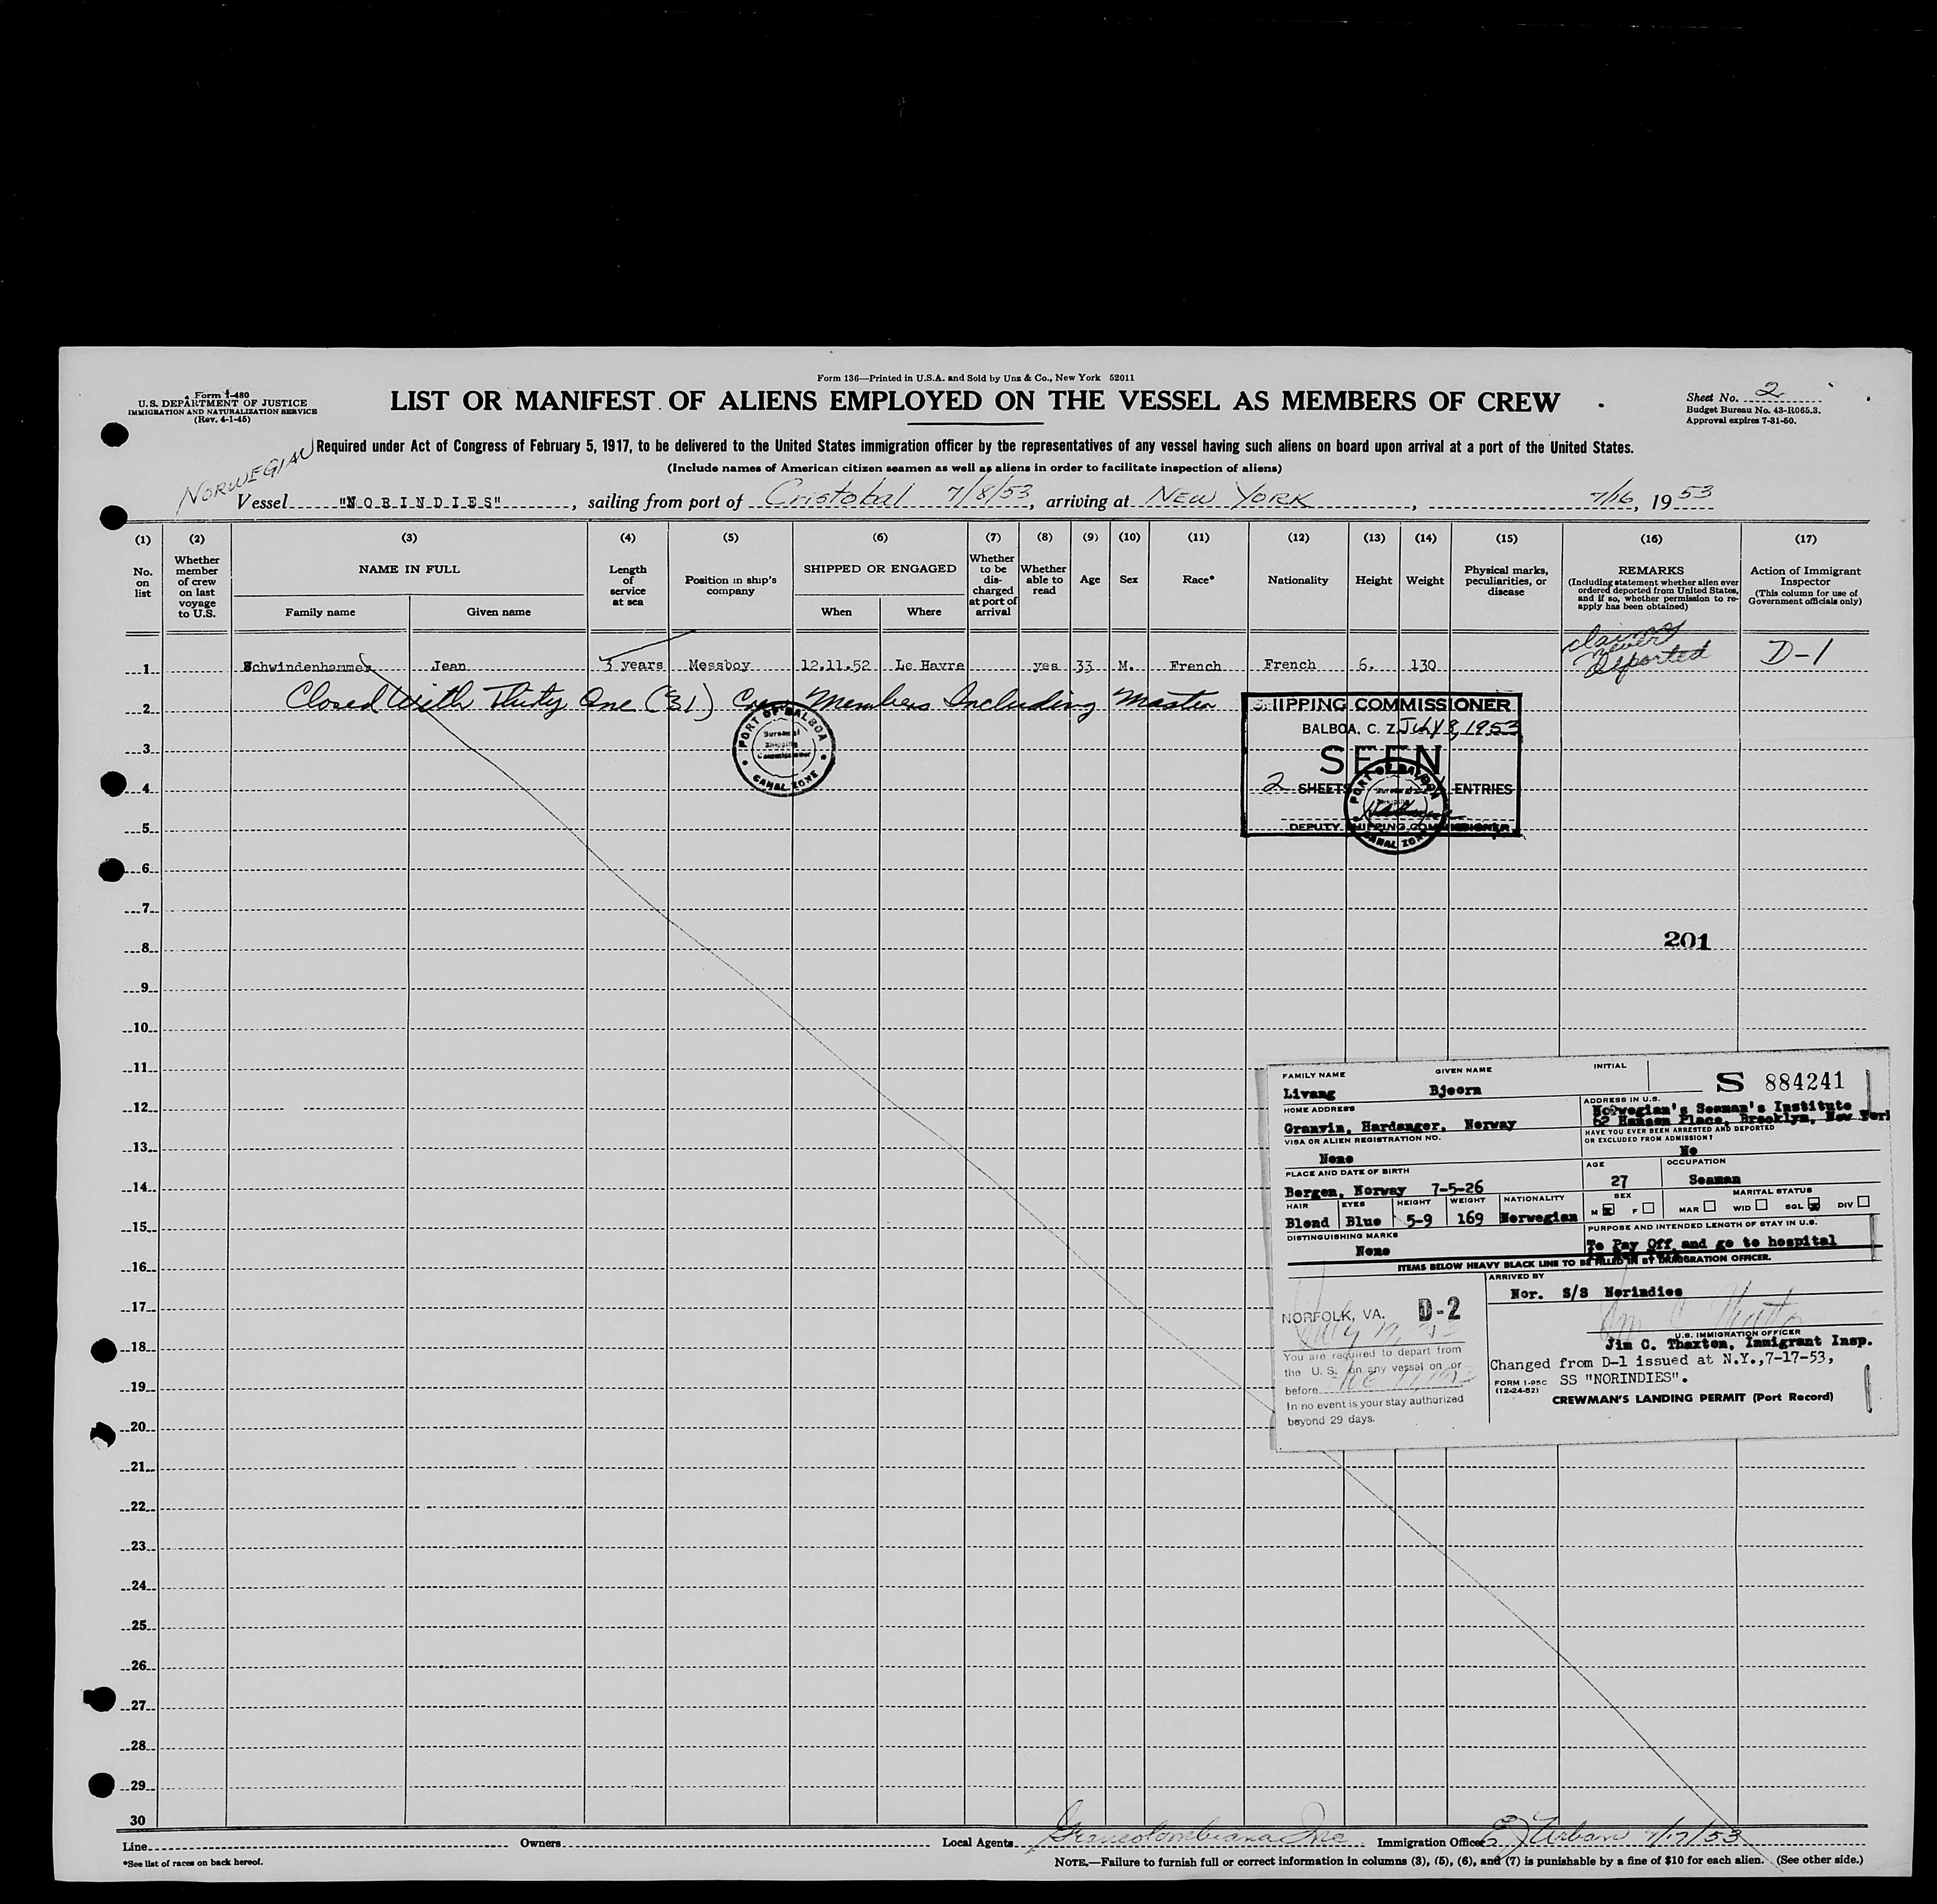 Form 136—Printed in U.S.A. and Sold by Unz & Co., New York 52011
Form I-480
U.S. DEPARTMENT OF JUSTICE
IMMIGRATION AND NATURALIZATION SERVICE
(Rev. 4-1-45)
LIST OR MANIFEST OF ALIENS EMPLOYED ON THE VESSEL AS MEMBERS OF CREW
Sheet No. 2
Budget Bureau No. 43-R065.3.
Approval expires 7-31-50.
Required under Act of Congress of February 5, 1917, to be delivered to the United States immigration officer by the representatives of any vessel having such aliens on board upon arrival at a port of the United States.
(Include names of American citizen seamen as well as aliens in order to facilitate inspection of aliens)
NORWEGIAN
Vessel "NORINDIES", sailing from port of Cristobal 7/8/53, arriving at NEW YORK, 7/16, 1953
(1) (2) (3) (4) (5) (6) (7) (8) (9) (10) (11) (12) (13) (14) (15) (16) (17)
No. on list
Whether member of crew on last voyage to U.S.
NAME IN FULL
Family name
Given name
Length of service at sea
Position in ship's company
SHIPPED OR ENGAGED
When
Where
Whether to be discharged at port of arrival
Whether able to read
Age
Sex
Race*
Nationality
Height
Weight
Physical marks, peculiarities, or disease
REMARKS
(Including statement whether alien ever ordered deported from United States, and if so, whether permission to reapply has been obtained)
Action of Immigrant Inspector
(This column for use of Government officials only)
claims never deported
1 Schwindenhammer Jean 3 years Messboy 12.11.52 Le Havre yes 33 M. French French 6. 130 D-1
2 Closed With Thirty One (31) Crew Members Including Master
3
4
5
6
7
8
9
10
11
12
13
14
15
16
17
18
19
20
21
22
23
24
25
26
27
28
29
30
PORT OF BALBOA
Bureau of
Shipping
Commissioner
CANAL ZONE
SHIPPING COMMISSIONER
BALBOA, C. Z. July 8, 1953
SEEN
2 SHEETS ENTRIES
DEPUTY SHIPPING COMMISSIONER
PORT OF BALBOA
CANAL ZONE
201
FAMILY NAME GIVEN NAME INITIAL
Livang Bjoern
S 884241
HOME ADDRESS
Granvin, Hardanger, Norway
ADDRESS IN U.S.
Norwegian's Seaman's Institute
62 Hansen Place, Brooklyn, New York
VISA OR ALIEN REGISTRATION NO.
None
HAVE YOU EVER BEEN ARRESTED AND DEPORTED OR EXCLUDED FROM ADMISSION?
No
PLACE AND DATE OF BIRTH
Bergen, Norway 7-5-26
AGE
27
OCCUPATION
Seaman
HAIR EYES HEIGHT WEIGHT NATIONALITY
Blond Blue 5-9 169 Norwegian
SEX
M F
MARITAL STATUS
MAR WID SGL DIV
DISTINGUISHING MARKS
None
PURPOSE AND INTENDED LENGTH OF STAY IN U.S.
To Pay Off and go to hospital
ITEMS BELOW HEAVY BLACK LINE TO BE FILLED IN BY IMMIGRATION OFFICER.
NORFOLK, VA. D-2
You are required to depart from
the U. S. on any vessel on or
before
In no event is your stay authorized
beyond 29 days.
ARRIVED BY
Nor. S/S Norindies
U.S. IMMIGRATION OFFICER
Jim C. Thaxton, Immigrant Insp.
Changed from D-1 issued at N.Y.,7-17-53,
SS "NORINDIES".
FORM I-95C
(12-24-52)
CREWMAN'S LANDING PERMIT (Port Record)
Line Owners Local Agents Grancolombiana Inc Immigration Officer E J Urban 7/17/53
*See list of races on back hereof.
NOTE.—Failure to furnish full or correct information in columns (3), (5), (6), and (7) is punishable by a fine of $10 for each alien. (See other side.)